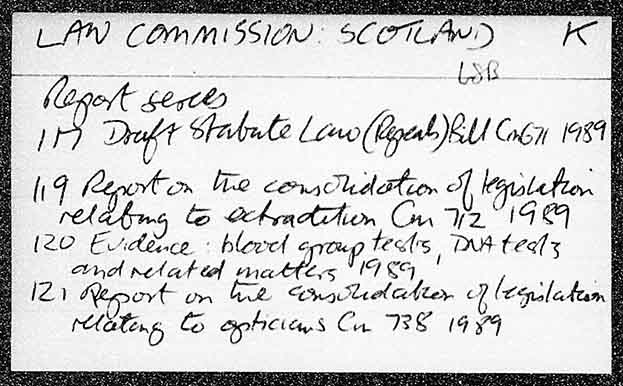 LAW COMMISSION: SCOTLAND K
LSB
Report series
117 Draft Statute Law (Repeals) Bill Cm671 1989
119 Report on the consolidation of legislation
relating to extradition Cm 712 1989
120 Evidence: blood group tests, DNA tests
and related matters 1989
121 Report on the consolidation of legislation
relating to opticians Cm 738 1989